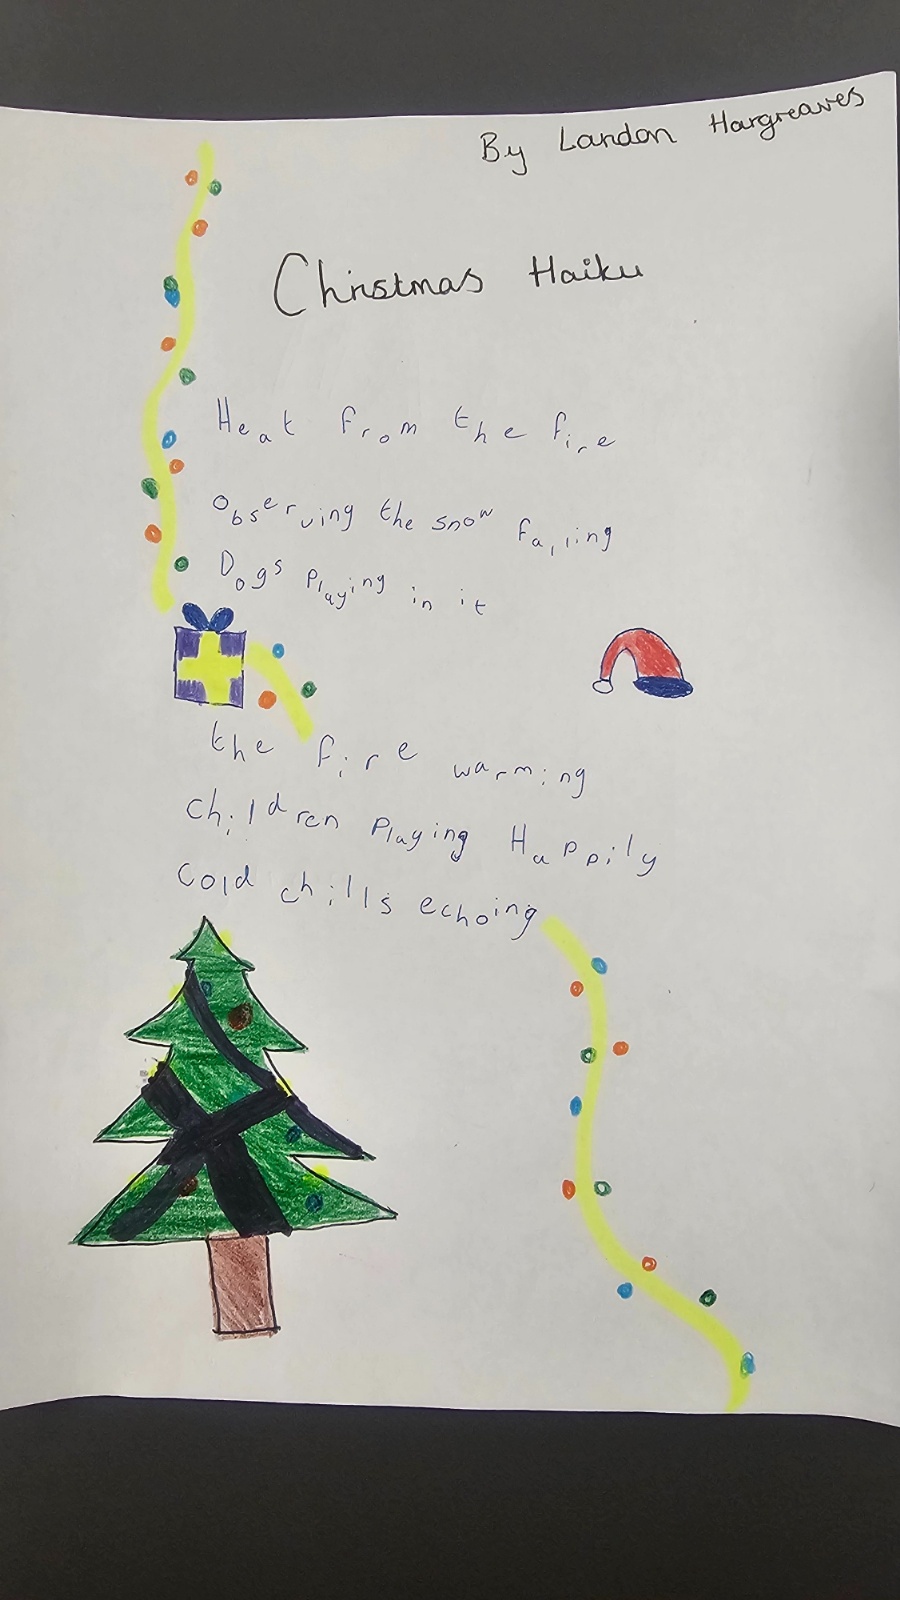 By Landon Hargreaves
Christmas Haiku
Heat from the fire
observing the snow falling
Dogs Playing in it
the fire warming
children Playing Happily
cold chills echoing